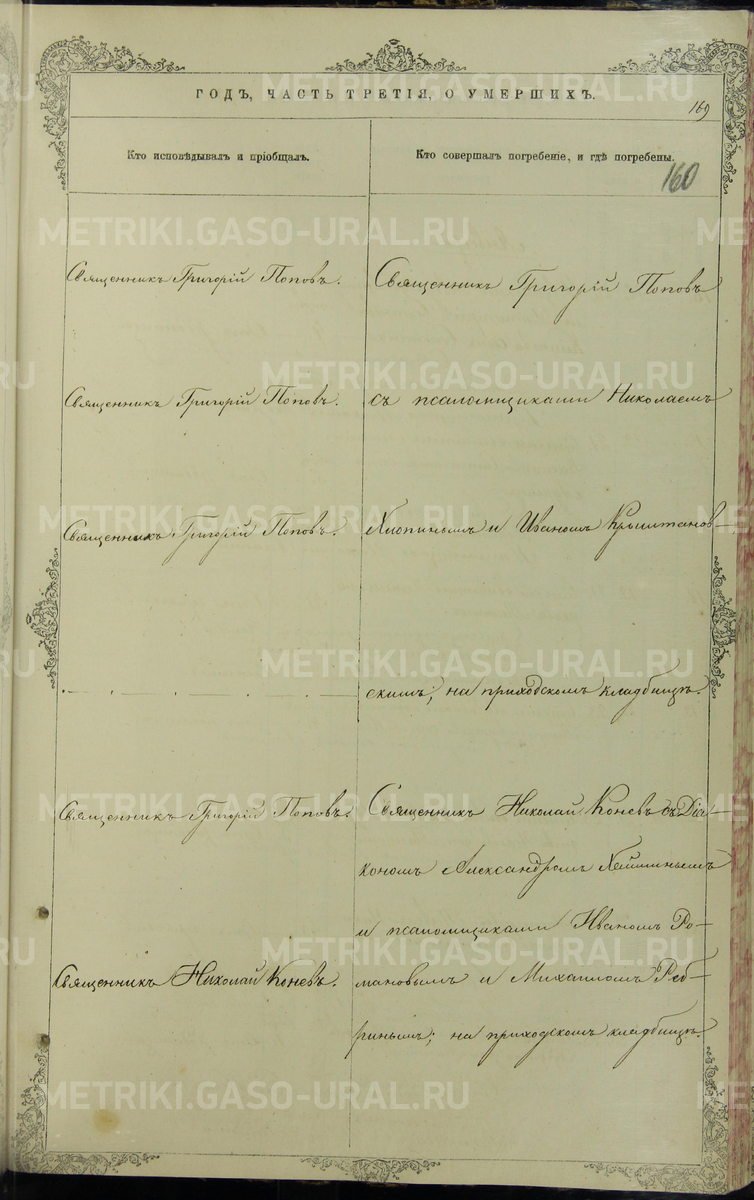 ГОДЪ, ЧАСТЬ ТРЕТІЯ, О УМЕРШИХЪ.
169
Кто исповѣдывалъ и пріобщалъ.
Кто совершалъ погребеніе, и гдѣ погребены.
160
Священникъ Григорій Поповъ.
Священникъ Григорій Поповъ
Священникъ Григорій Поповъ.
съ псаломщиками Николаемъ
Священникъ Григорій Поповъ.
Хлопинымъ и Иваномъ Крыштанов-
скимъ; на приходскомъ кладбищѣ.
Священникъ Григорій Поповъ.
Священникъ Николай Коневъ съ Діа-
кономъ Александромъ
и псаломщиками Иваномъ Ро-
Священникъ Николай Коневъ.
мановымъ и Михаиломъ Реб-
ринымъ; на приходскомъ кладбищѣ.
METRIKI.GASO-URAL.RU